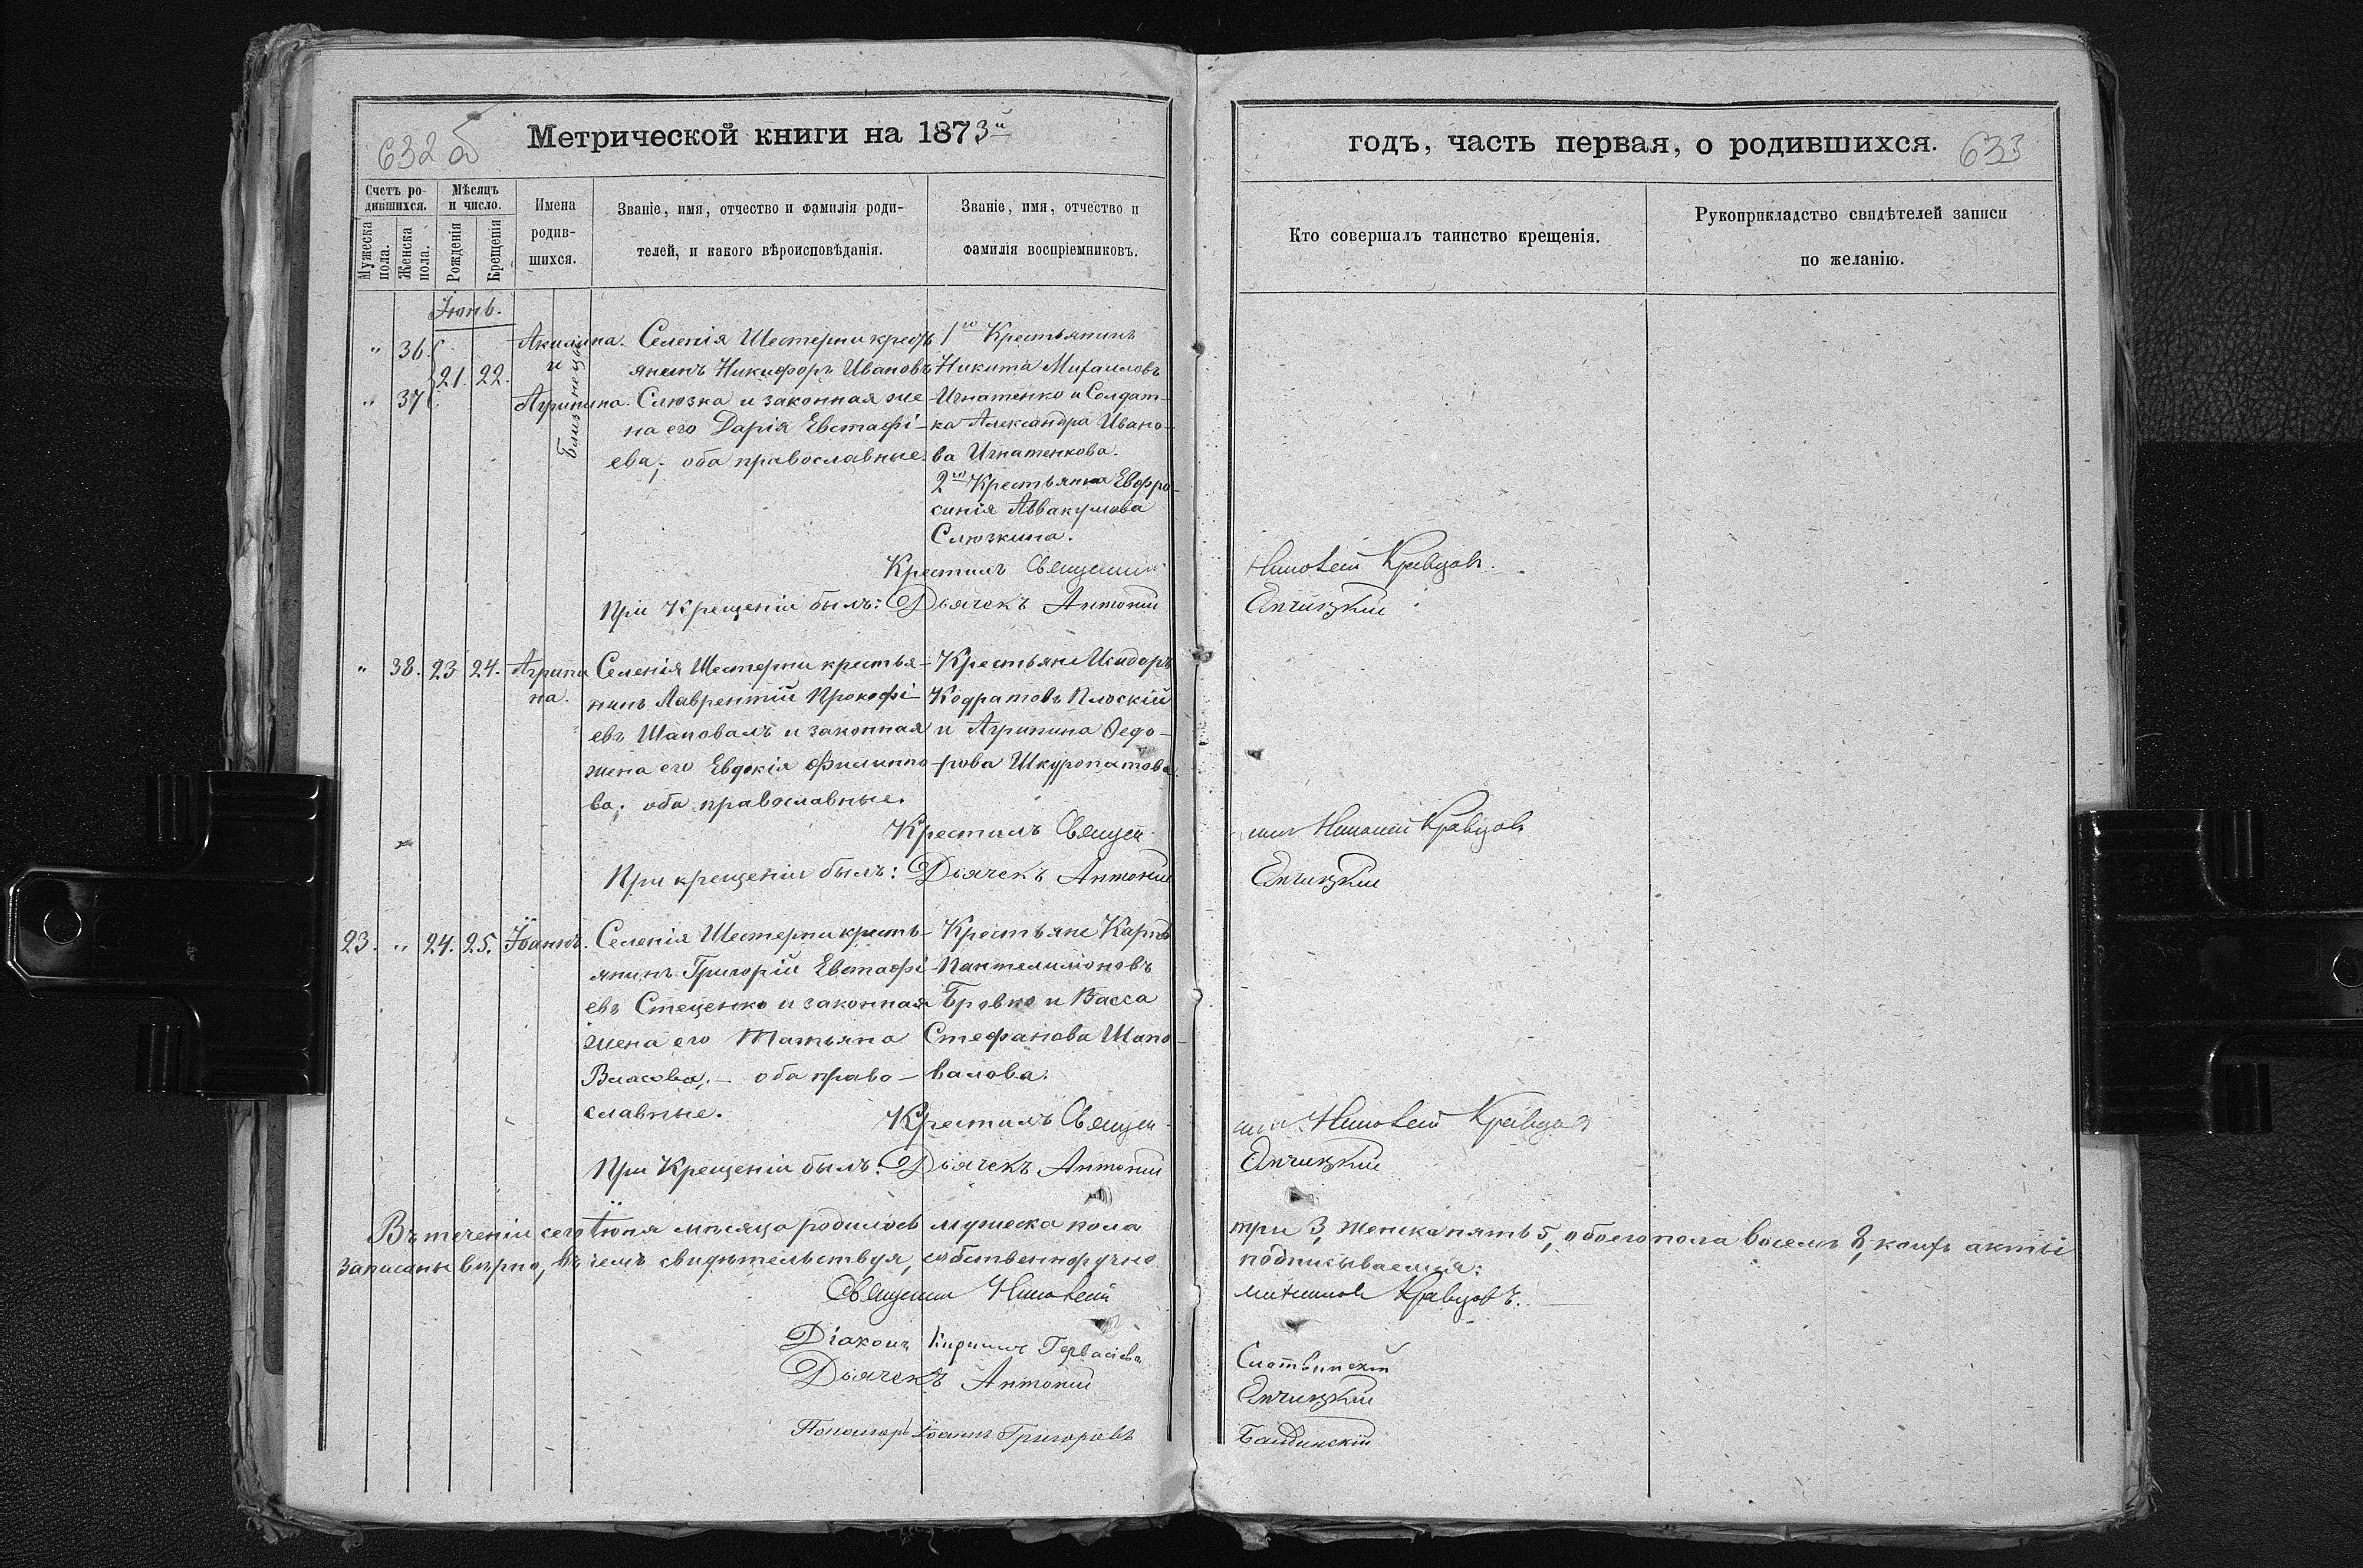 632 б
Метрической книги на 1873й
годъ, часть первая, о родившихся.
633
Счетъ родившихся.
Мужеска пола.
Женска пола.
Мѣсяцъ и число.
Рожденія
Крещенія
Имена родившихся.
Званіе, имя, отчество и фамилія роди-
телей, и какого вѣроисповѣданія.
Званіе, имя, отчество и
фамилія воспріемниковъ.
Кто совершалъ таинство крещенія.
Рукоприкладство свидѣтелей записи
по желанію.
Іюнь.
" 36. 21. 22. Акилина.
и
" 37 Агрипина.
близнецы
Селенія Шестерни кресть
янинъ Никифоръ Ивановъ
Слюзка и законная же-
на его Дарія Евстафі-
ева; оба православные.
1го Крестьянинъ
Никита Михаиловъ
Игнатенко и Солдат-
ка Александра Ивано-
ва Игнатенкова.
2го Крестьянка Евфро-
синія Аввакумова
Слюзкина.
Крестилъ Священникъ
Кравцовъ.
При Крещеніи былъ: Дьячекъ Антоній
" 38. 23 24. Агрипи
на.
Селенія Шестерни крестья-
нинъ Лаврентій Прокофі-
евъ Шаповалъ и законная
жена его Евдокія Филиппо-
ва; оба православные.
Крестьяне Исидоръ
Кодратовъ Плоскій
и Агрипина Ѳедо-
рова Шкуропатова.
Крестилъ Священ-
никъ Кравцовъ
При крещеніи былъ: Дьячекъ Антоній
23. " 24. 25. Іоаннъ.
Селенія Шестерни кресть-
янинъ Григорій Евстафі-
евъ Стеценко и законная
жена его Татьяна
Власова; – оба право-
славные.
Крестьяне Карпъ
Пантелимоновъ
Бровко и Васса
Стефанова Шапо-
валова.
Крестилъ Священ-
никъ Кравцовъ
При Крещеніи былъ: Дьячекъ Антоній
Въ теченіи сего Іюня мѣсяца родилось мужеска пола три 3, женска пять 5, обоего пола восемь 8, коихъ акты
записаны вѣрно, въ чемъ свидѣтельствуя, собственноручно подписываемся:
Священникъ Кравцовъ.
Діаконъ Кириллъ Гервасіевъ
Дьячекъ Антоній
Пономарь Іоаннъ Григорьевъ